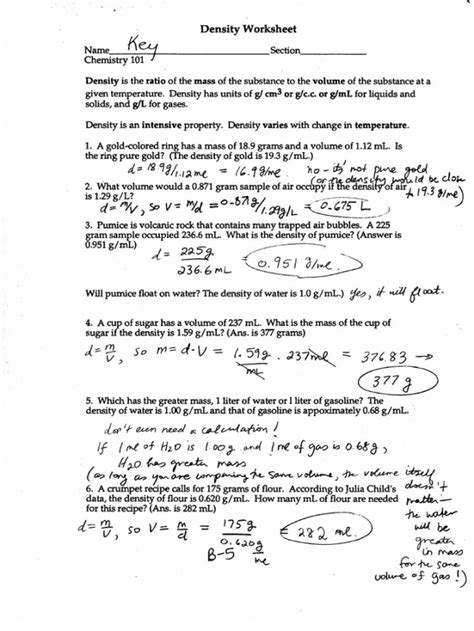 Density Worksheet
Name Key Section
Chemistry 101
Density is the ratio of the mass of the substance to the volume of the substance at a
given temperature. Density has units of g/ cm³ or g/c.c. or g/mL for liquids and
solids, and g/L for gases.
Density is an intensive property. Density varies with change in temperature.
1. A gold-colored ring has a mass of 18.9 grams and a volume of 1.12 mL. Is
the ring pure gold? (The density of gold is 19.3 g/mL.)
d = 18.9g/1.12 mL = 16.9 g/mL no - it's not pure gold
(or the density would be close
to 19.3 g/mL)
2. What volume would a 0.871 gram sample of air occupy if the density of air
is 1.29 g/L?
d = m/V, so V = m/d = 0.871g/1.29g/L = 0.675 L
3. Pumice is volcanic rock that contains many trapped air bubbles. A 225
gram sample occupied 236.6 mL. What is the density of pumice? (Answer is
0.951 g/mL)
d = 225g
236.6 mL
= 0.951 g/mL
Will pumice float on water? The density of water is 1.0 g/mL.) yes, it will float.
4. A cup of sugar has a volume of 237 mL. What is the mass of the cup of
sugar if the density is 1.59 g/mL? (Ans. is 377 grams)
d = m/V, so m = d·V = 1.59g/mL · 237mL = 376.83 →
377 g
5. Which has the greater mass, 1 liter of water or l liter of gasoline? The
density of water is 1.00 g/mL and that of gasoline is appoximately 0.68 g/mL.
don't even need a calculation!
If 1 mL of H2O is 1.00 g and 1 mL of gas is 0.68 g,
H2O has greater mass
(as long as you are comparing the same volume, the volume itself
doesn't
matter—
the water
will be
greater
in mass
for the same
volume of gas!)
6. A crumpet recipe calls for 175 grams of flour. According to Julia Child's
data, the density of flour is 0.620 g/mL. How many mL of flour are needed
for this recipe? (Ans. is 282 mL)
d = m/V, so V = m/d = 175g
0.620g/mL
= 282 mL.
B-5